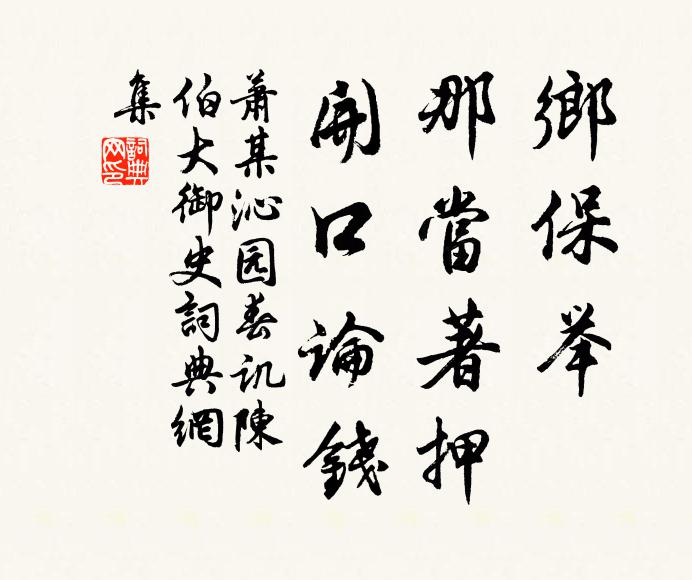 鄉保举
那當著押
開口論錢
萧某沁园春讥陳
伯大御史詞典網
集
詞典
网印